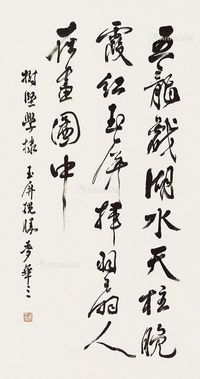 五龍戲湖水天柱晚
霞红玉屏揮羽扇人
在畫圖中
樹堅學棣 玉屏揽勝 夢華